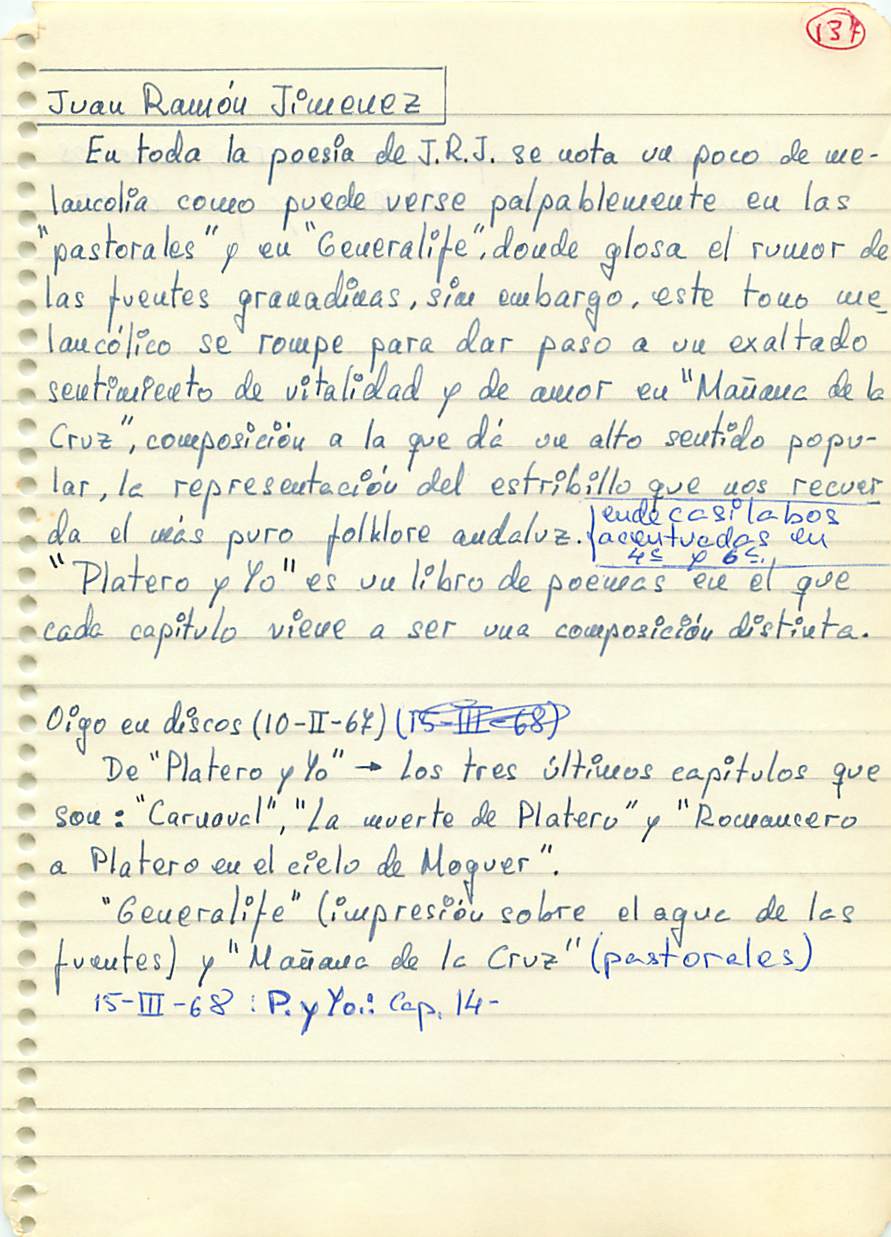 137
Juan Ramón Jimenez
En toda la poesía de J.R.J. se nota un poco de me-
lancolía como puede verse palpablemente en las
"pastorales" y en "Generalife", donde glosa el rumor de
las fuentes granadinas, sin embargo, este tono me_
lancólico se rompe para dar paso a un exaltado
sentimiento de vitalidad y de amor en "Mañana de la
Cruz", composición a la que dá un alto sentido popu-
lar, la representación del estribillo que nos recuer
da el más puro folklore andaluz.
endecasilabos
acentuadas en
4ª y 6ª.
"Platero y Yo" es un libro de poemas en el que
cada capitulo viene a ser una composición distinta.
Oigo en discos (10-II-67) (15-III-68)
De "Platero y Yo" → Los tres últimos capitulos que
son: "Carnaval", "La muerte de Platero" y "Romancero
a Platero en el cielo de Moguer".
"Generalife" (impresión sobre el agua de las
fuentes) y "Mañana de la Cruz" (pastorales)
15-III-68: P. y Yo.: Cap. 14-